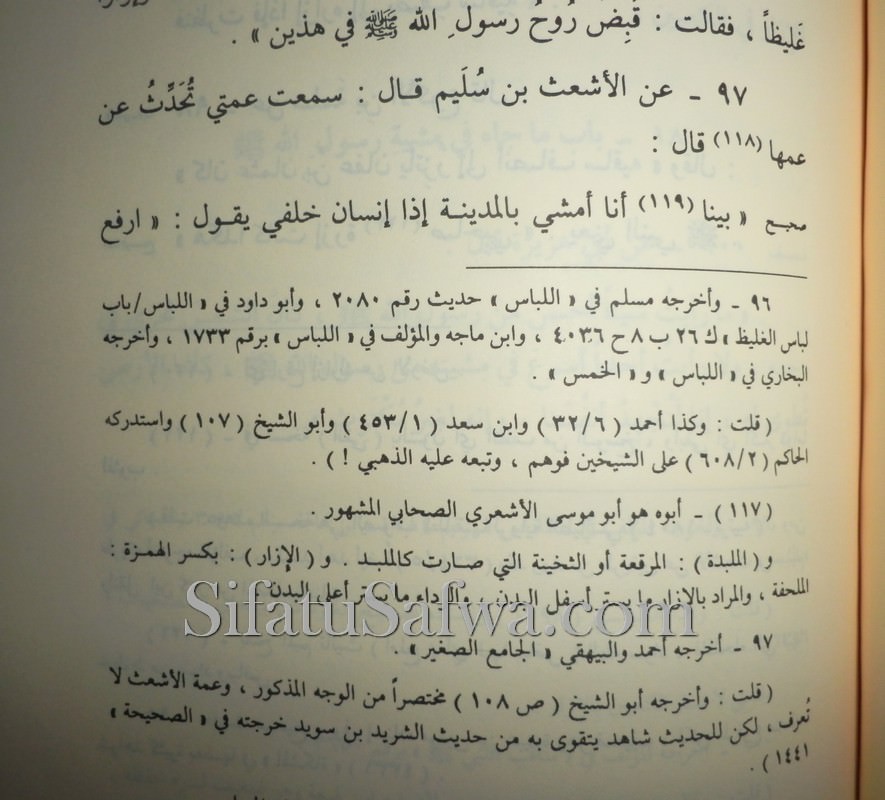 غَليظاً ، فقالت : قُبِضَ رُوحُ رسولِ الله ﷺ في هذين » .
٩٧ - عن الأشعث بن سُلَيم قال : سمعت عمتي تُحَدِّثُ عن
عمها (١١٨) قال :
صحيح « بينا (١١٩) أنا أمشي بالمدينة إذا إنسان خلفي يقول : « ارفع
٩٦ - وأخرجه مسلم في « اللباس » حديث رقم ٢٠٨٠ ، وأبو داود في « اللباس/باب
لباس الغليظ » ك ٢٦ ب ٨ ح ٤٠٣٦ ، وابن ماجه والمؤلف في « اللباس » برقم ١٧٣٣ ، وأخرجه
البخاري في « اللباس » و « الخمس » .
( قلت : وكذا أحمد ( ٣٢/٦ ) وابن سعد ( ٤٥٣/١ ) وأبو الشيخ ( ١٠٧ ) واستدركه
الحاكم ( ٦٠٨/٢ ) على الشيخين فوهم ، وتبعه عليه الذهبي ! ) .
( ١١٧ ) - أبوه هو أبو موسى الأشعري الصحابي المشهور .
و ( الملبدة ) : المرقعة أو الثخينة التي صارت كالملبد . و ( الإزار ) : بكسر الهمزة :
الملحفة ، والمراد بالإزار ما يستر أسفل البدن ، والرداء ما يستر أعلى البدن .
SifatuSafwa.com
٩٧ - أخرجه أحمد والبيهقي « الجامع الصغير » .
( قلت : وأخرجه أبو الشيخ ( ص ١٠٨ ) مختصراً من الوجه المذكور ، وعمة الأشعث لا
تُعرف ، لكن للحديث شاهد يتقوى به من حديث الشريد بن سويد خرجته في « الصحيحة »
١٤٤١ ) .